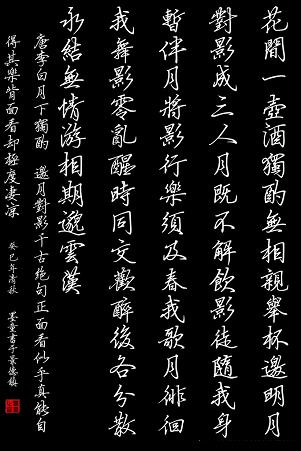 花間一壺酒獨酌無相親舉杯邀明月
對影成三人月既不解飲影徒隨我身
暫伴月將影行樂須及春我歌月徘徊
我舞影零亂醒時同交歡醉後各分散
永結無情游相期邈雲漢
唐李白月下獨酌 邀月對影千古絕句正面看似乎真能自
得其樂背面看却極度淒涼 癸巳年清秋 墨童書于景德鎮